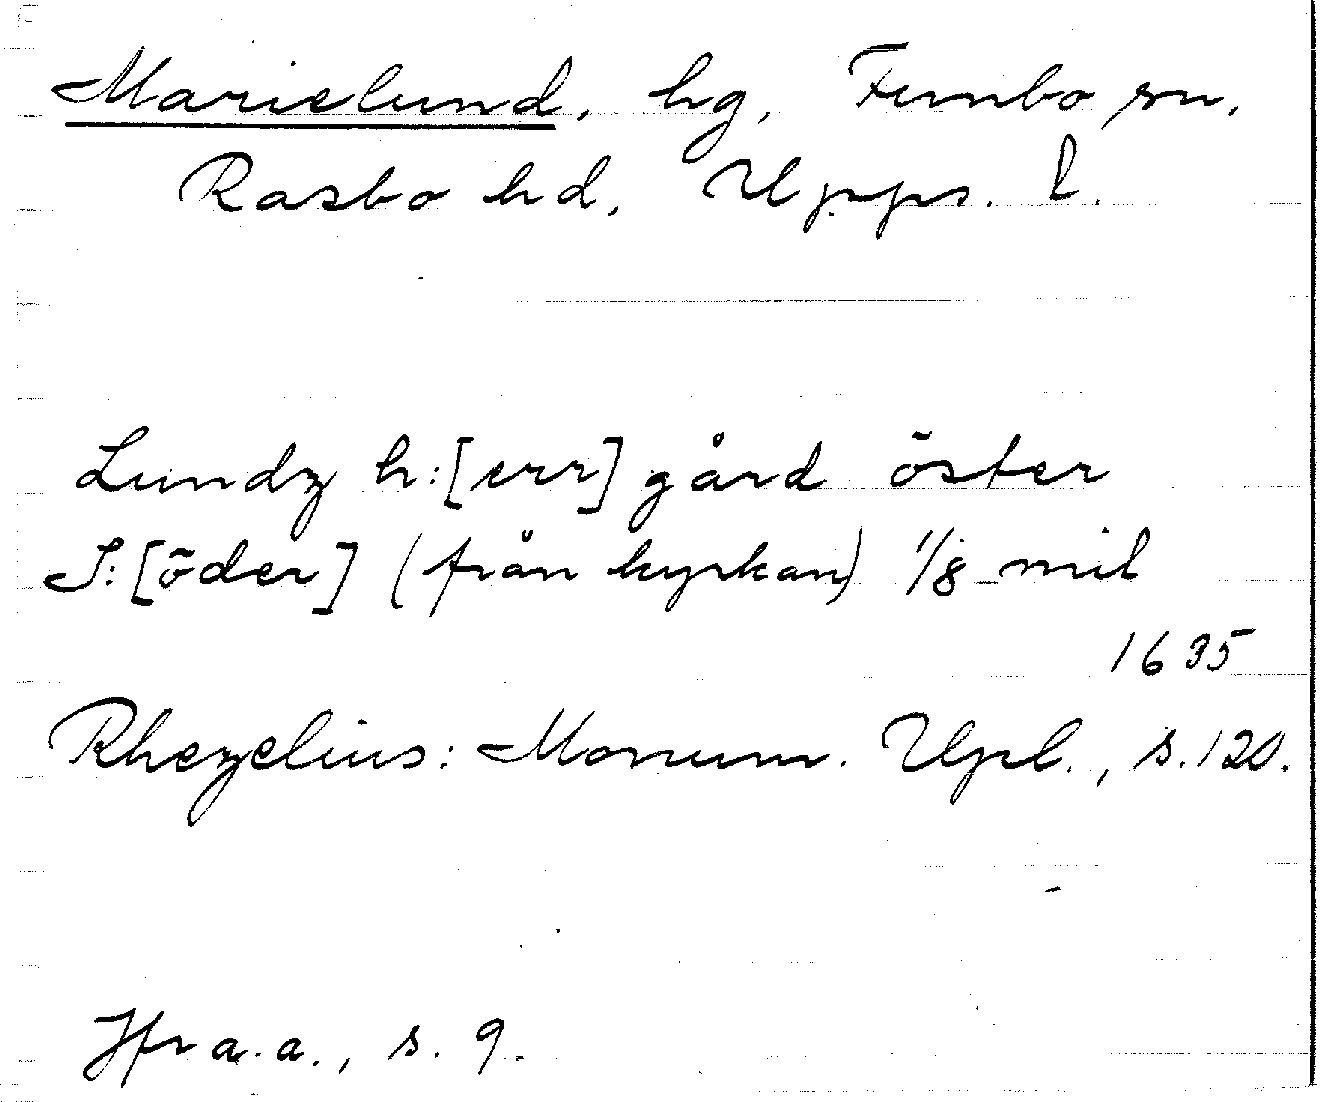 Marielund, hg, Funbo sn,
Rasbo hd, Upps. l.
Lundz h:[err]gård öster
S:[öder] (från kyrkan) 1/8 mil
1635
Rhezelius: Monum. Upl., s.120.
Jfr a.a., s. 9.